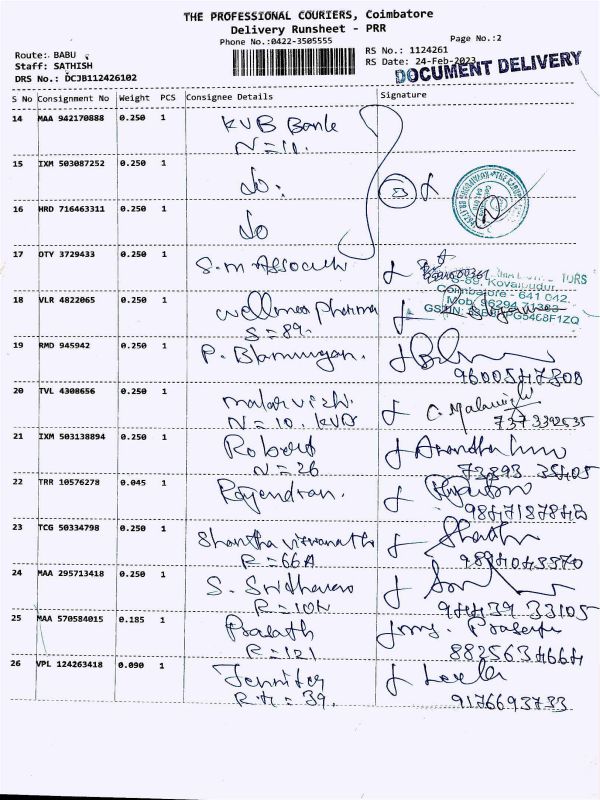 THE PROFESSIONAL COURIERS, Coimbatore
Delivery Runsheet - PRR
Phone No.:0422-3505555
Page No.:2
Route: BABU
Staff: SATHISH
DRS No.: DCJB112426102
RS No.: 1124261
RS Date: 24-Feb-2023
DOCUMENT DELIVERY
S No Consignment No Weight PCS Consignee Details Signature
14 MAA 942170888 0.250 1 KVB Bank
N=11.
15 IXM 503087252 0.250 1 do.
16 HRD 716463311 0.250 1 do
17 OTY 3729433 0.250 1 S.M
18 VLR 4822065 0.250 1 wellmed pharma
S=89.
S-89, Kovaipudur,
Coimbatore - 641 042.
Mob: 96294 71383
19 RMD 945942 0.250 1 P. 
9600547808
20 TVL 4308656 0.250 1 malarvizhi C. Malarvizhi
N=10. KVB 7373392535
21 IXM 503138894 0.250 1 Robert
N=26 73393 35405
22 TRR 10576278 0.045 1 Rajendran.
23 TCG 50334798 0.250 1 Shantha viswanath
R=66A 9894043370
24 MAA 295713418 0.250 1 S. Sridharan
R=10N 94439 33105
25 MAA 570584015 0.185 1
R=121 8825634664
26 VPL 124263418 0.090 1 Jennifer Leela
39. 9176693733